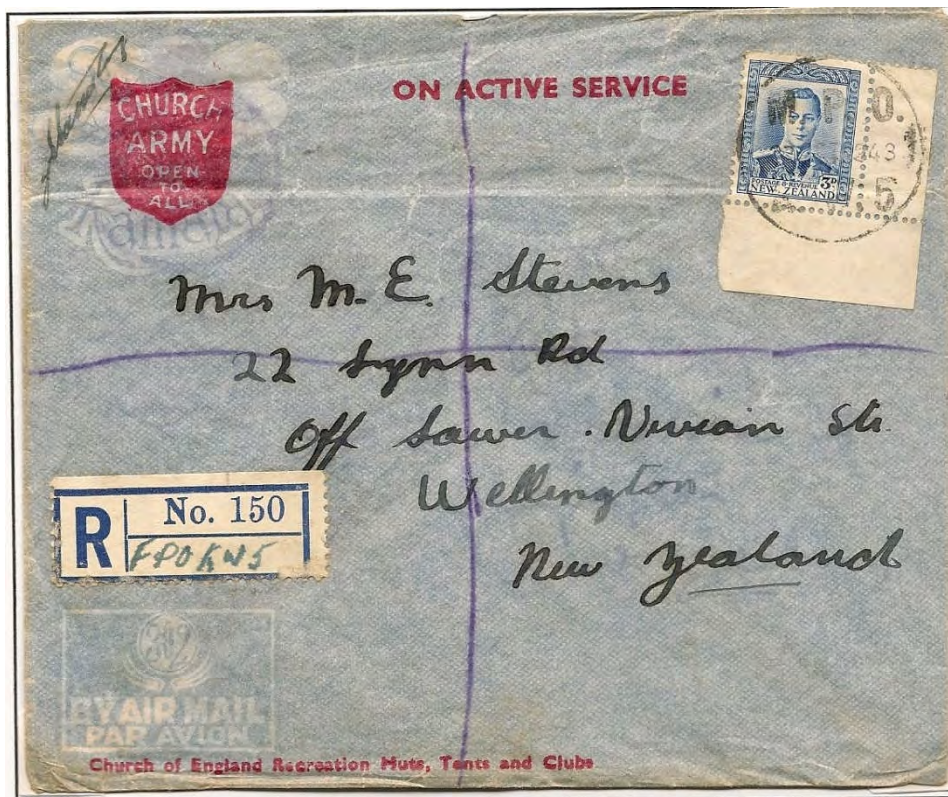 CHURCH
ARMY
OPEN
TO
ALL
ON ACTIVE SERVICE
POSTAGE & REVENUE
3D
NEW ZEALAND
Mrs M. E. Stevens
22 Lynn Rd
Off Vivian Str.
Wellington
New Zealand
R
No. 150
FPO KW5
BY AIR MAIL
PAR AVION
Church of England Recreation Huts, Tents and Clubs